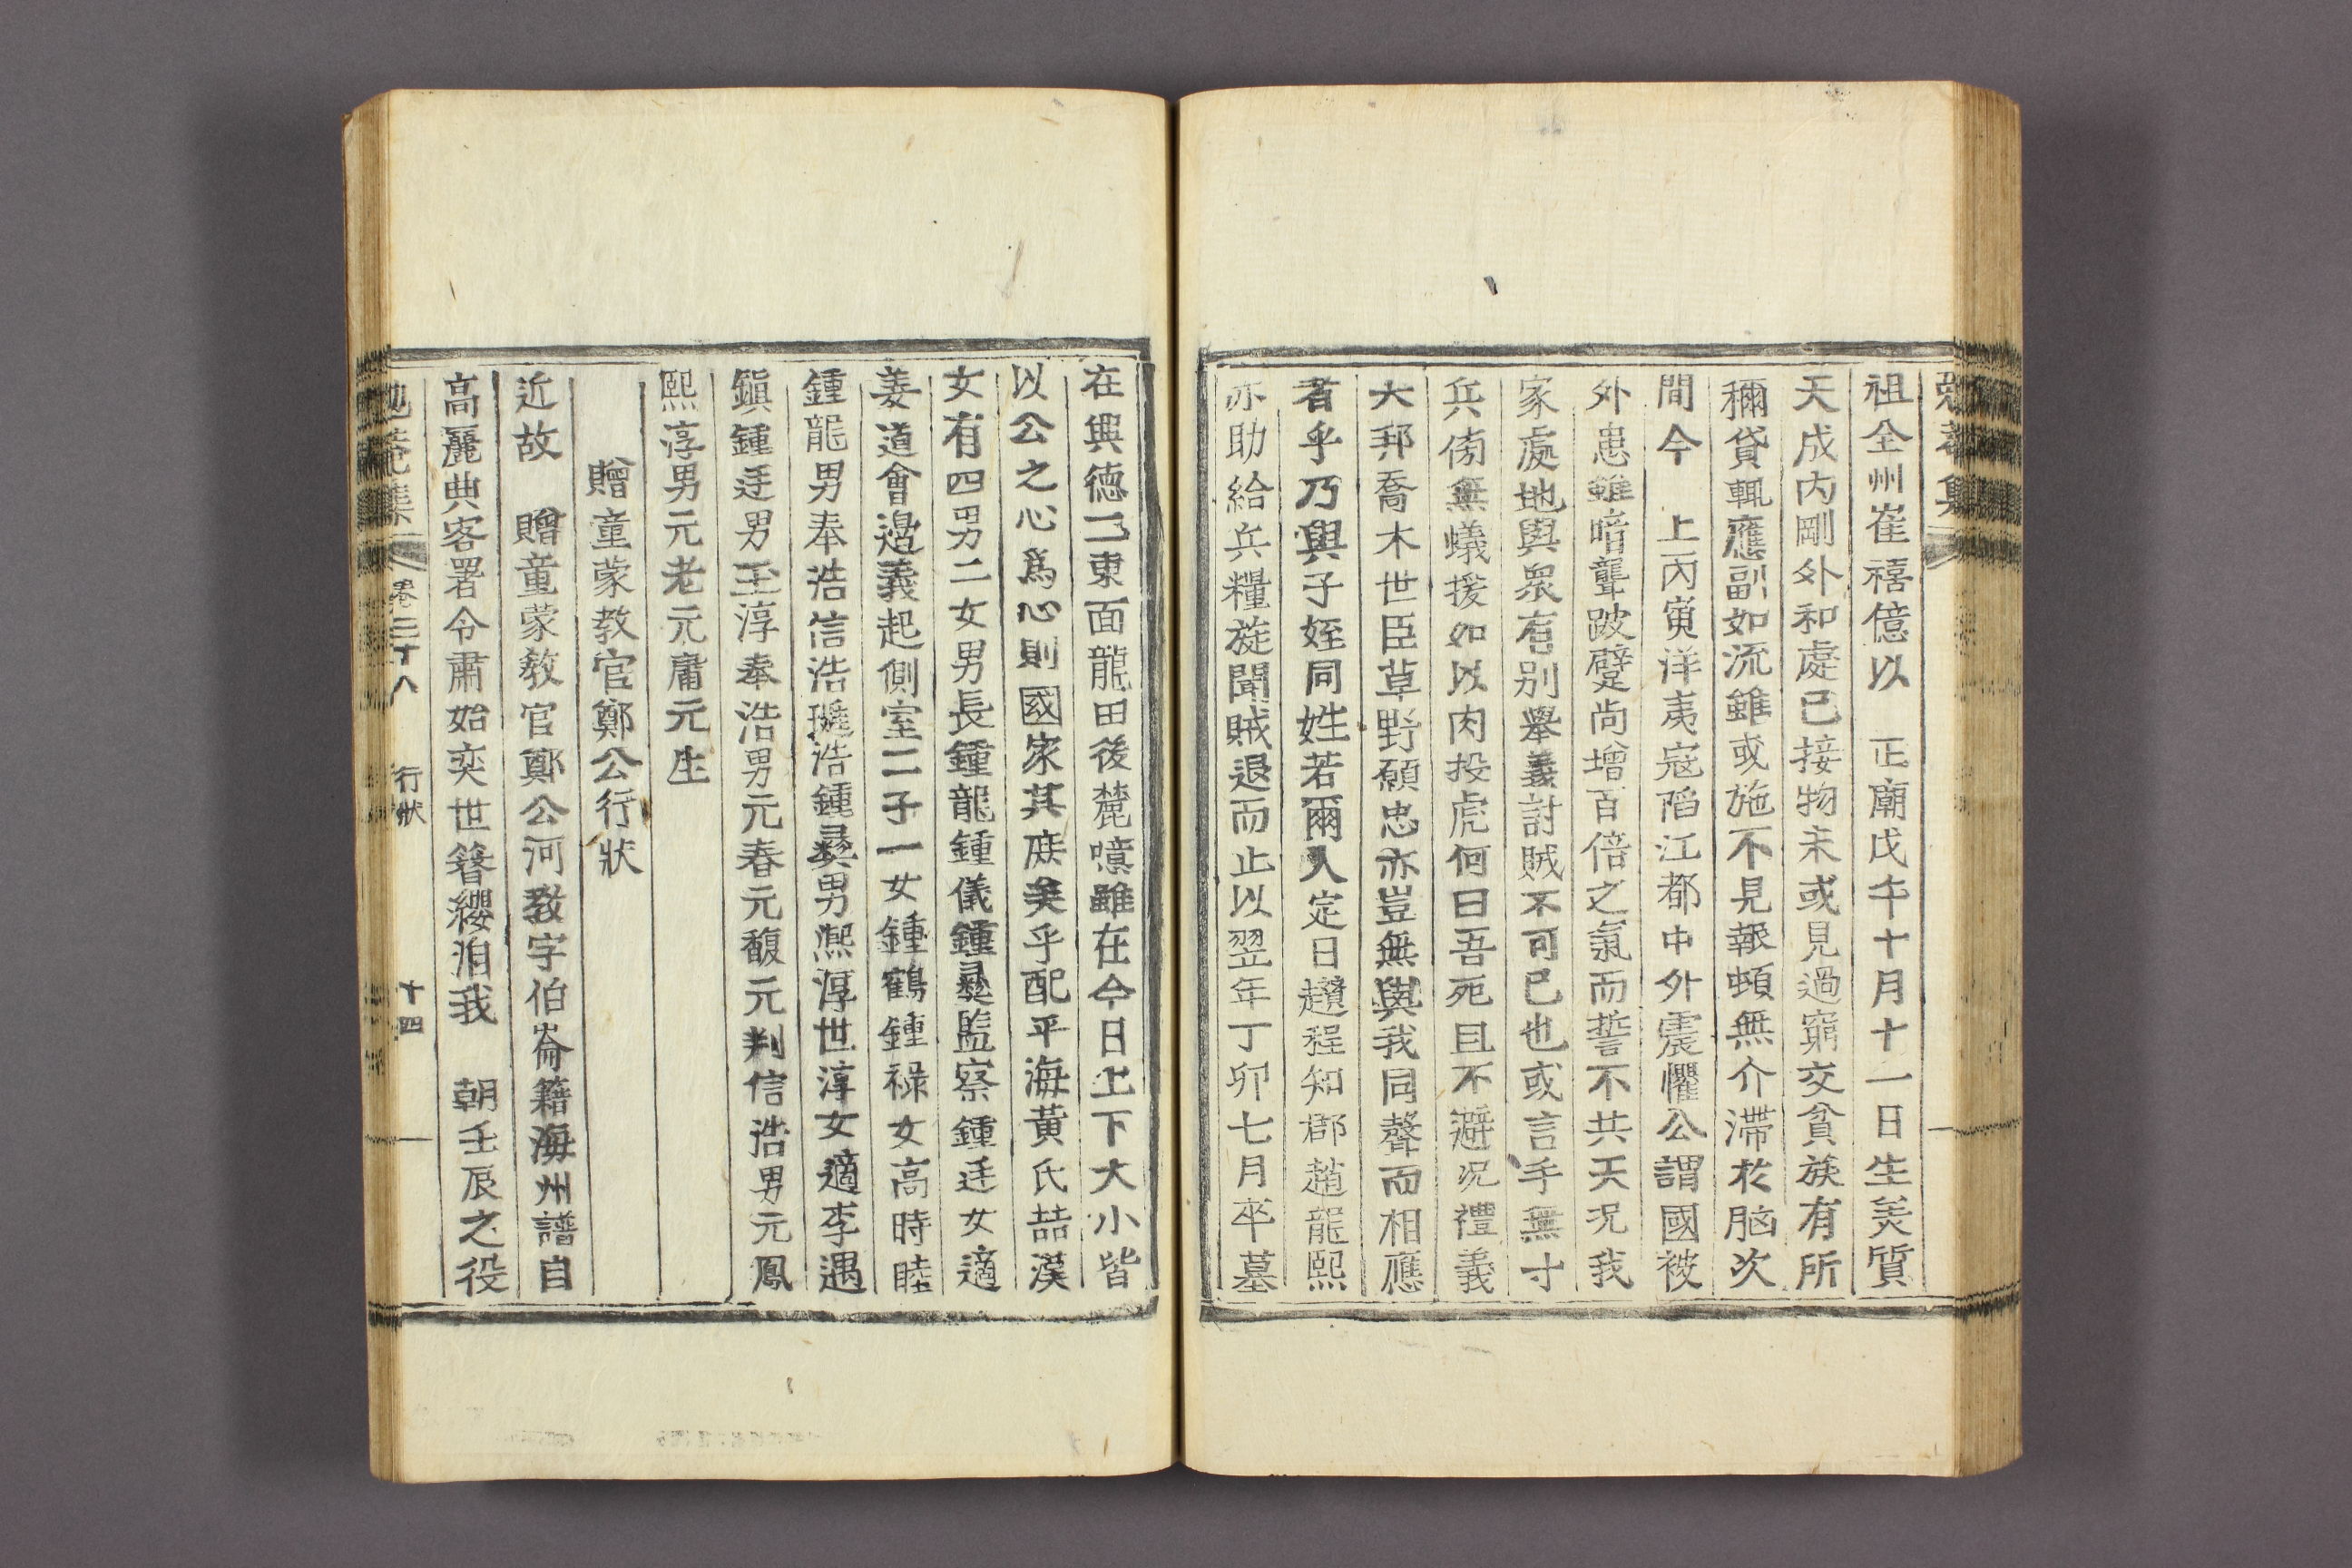 祖全州崔禧億以　正廟戊午十月十一日生美質
天成内剛外和處己接物未或見過窮交貧族有所
稱貸輒應副如流雖或施不見報頓無介滯於腦次
間今　上丙寅洋夷寇陷江都中外震懼公謂國被
外患雖喑聾跛躄尚增百倍之氣而誓不共天况我
家處地與衆有别舉義討賊不可已也或言手無寸
兵傍無蟻援如以肉投虎何曰吾死且不避况禮義
大邦喬木世臣草野願忠亦豈無與我同聲而相應
者乎乃與子姪同姓若爾人定日趲程知郡趙龍熙
亦助給兵糧旋聞賊退而止以翌年丁卯七月卒墓
在興德二東面龍田後麓噫雖在今日上下大小皆
以公之心爲心則國家其庶美乎配平海黄氏喆漢
女有四男二女男長鍾龍鍾儀鍾彛監察鍾廷女適
姜道會邉義起側室二子一女鍾鶴鍾祿女高時睦
鍾龍男奉浩信浩㼁浩鍾彛男熙淳世淳女適李遇
鎭鍾廷男玉淳奉浩男元春元馥元判信浩男元鳳
熙淳男元老元庸元生
贈童蒙教官鄭公行狀
近故　贈童蒙敎官鄭公河敎字伯崙籍海州譜自
高麗典客署令肅始奕世簪纓洎我　朝壬辰之役
卷二十八　行狀　十四